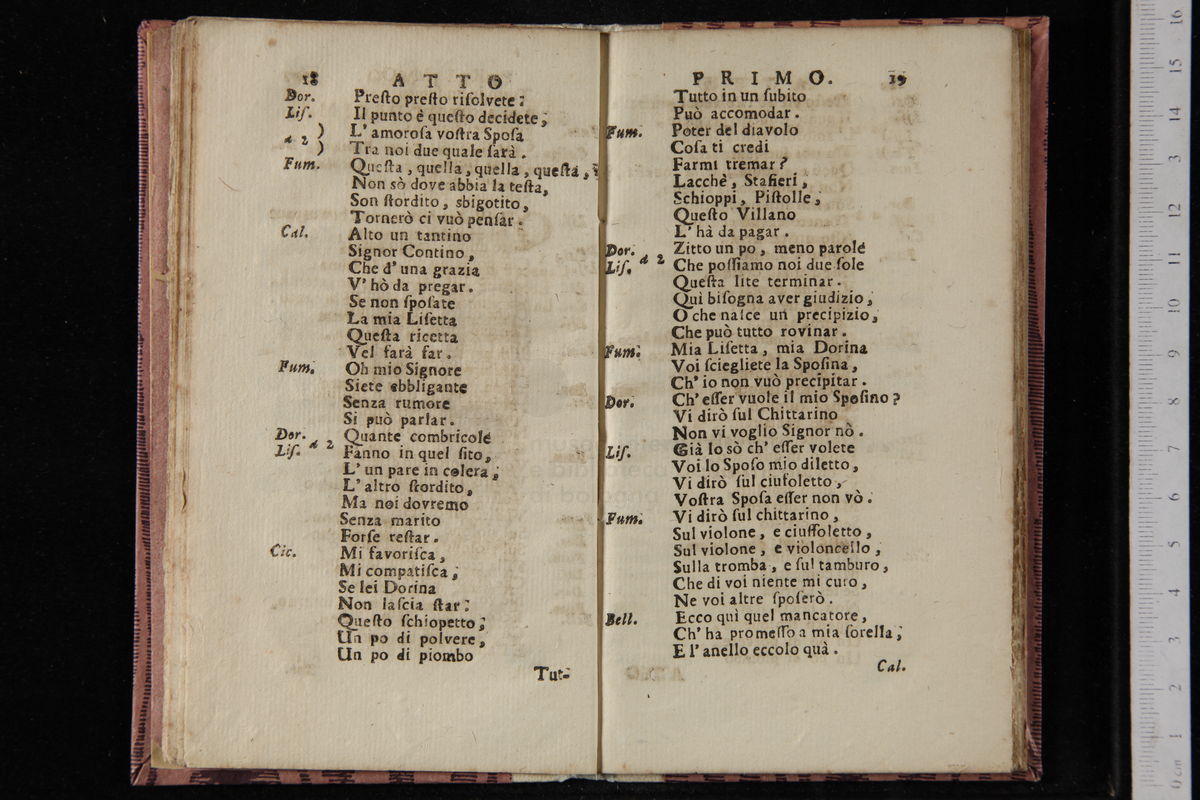 18 ATTO
Dor. Preſto preſto riſolvete;
Liſ. Il punto è queſto decidete;
a 2 ) L'amoroſa voſtra Spoſa
) Tra noi due quale ſarà.
Fum. Queſta, quella, quella, queſta,
Non sò dove abbia la teſta,
Son ſtordito, sbigotito,
Tornerò ci vuò penſar.
Cal. Alto un tantino
Signor Contino,
Che d'una grazia
V'hò da pregar.
Se non ſpoſate
La mia Liſetta
Queſta ricetta
Vel farà far.
Fum. Oh mio Signore
Siete obbligante
Senza rumore
Si può parlar.
Dor. Quante combricole
Liſ. a 2 Fanno in quel ſito,
L'un pare in colera,
L'altro ſtordito,
Ma noi dovremo
Senza marito
Forſe reſtar.
Cic. Mi favoriſca,
Mi compatiſca,
Se lei Dorina
Non laſcia ſtar:
Queſto ſchiopetto;
Un po di polvere,
Un po di piombo
Tut-
PRIMO. 19
Tutto in un ſubito
Può accomodar.
Fum. Poter del diavolo
Coſa ti credi
Farmi tremar?
Lacchè, Stafieri,
Schioppi, Piſtolle,
Queſto Villano
L'hà da pagar.
Dor. Zitto un po, meno parole
Liſ. a 2 Che poſſiamo noi due ſole
Queſta lite terminar.
Quì biſogna aver giudizio,
O che naſce un precipizio,
Che può tutto rovinar.
Fum. Mia Liſetta, mia Dorina
Voi ſciegliete la Spoſina,
Ch'io non vuò precipitar.
Dor. Ch'eſſer vuole il mio Spoſino?
Vi dirò ſul Chittarino
Non vi voglio Signor nò.
Liſ. Già lo sò ch'eſſer volete
Voi lo Spoſo mio diletto,
Vi dirò ſul ciufoletto,
Voſtra Spoſa eſſer non vò.
Fum. Vi dirò ſul chittarino,
Sul violone, e ciuffoletto,
Sul violone, e violoncello,
Sulla tromba, e ſul tamburo,
Che di voi niente mi curo,
Ne voi altre ſpoſerò.
Bell. Ecco quì quel mancatore,
Ch'ha promeſſo a mia ſorella,
E l'anello eccolo quà.
Cal.